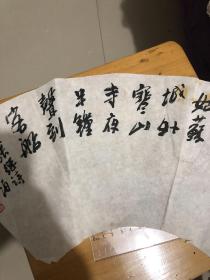 姑蘇
城外
寒山
寺夜
半鐘
聲到
客船